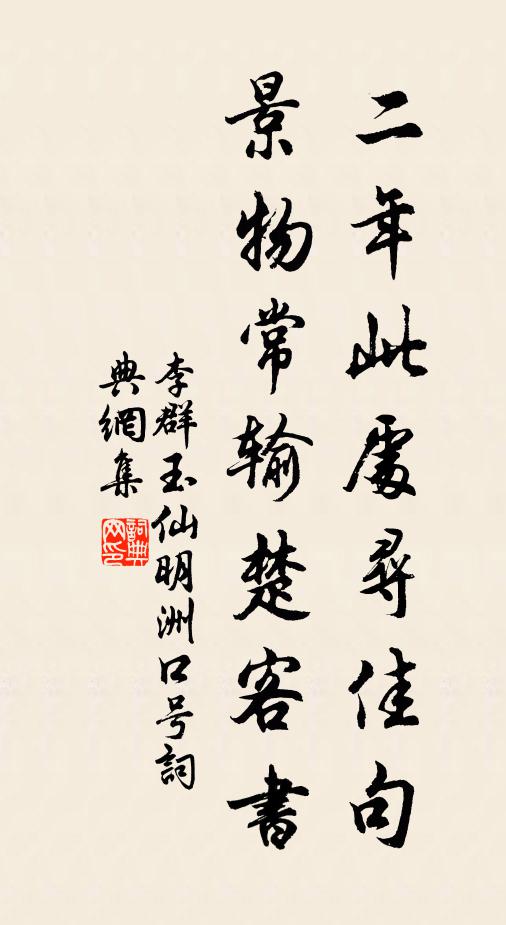 二年此處尋佳句
景物常输楚客書
李群玉仙明洲口号詞
典網集
詞典网印